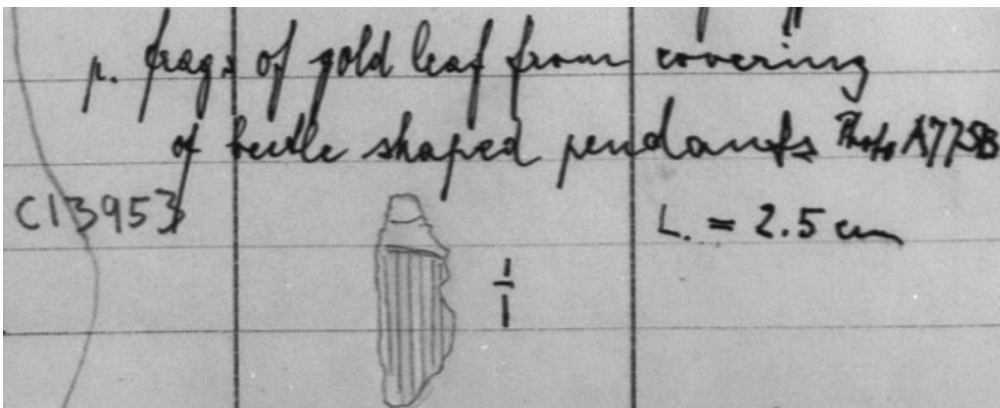 p. frags of gold leaf from covering
of beetle shaped pendants Photo A775B
C13953
L. = 2.5 cm
1/1